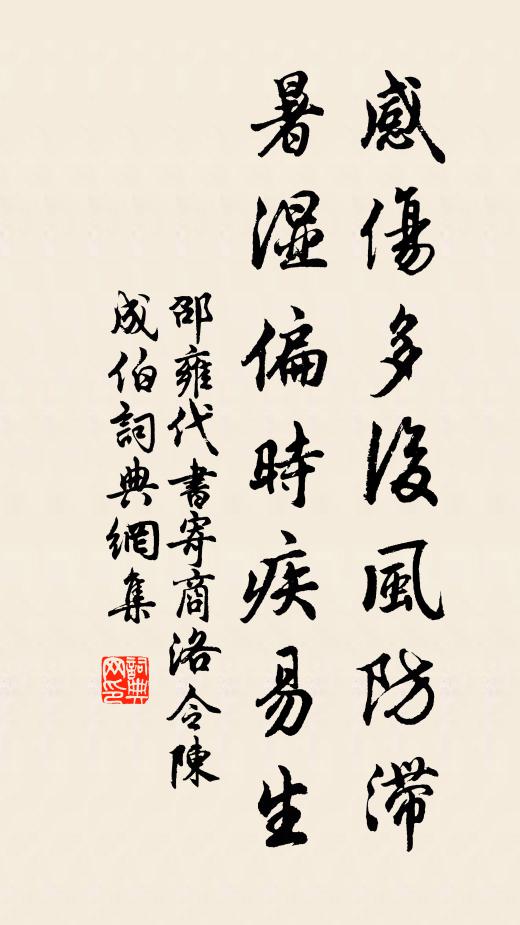 感傷多後風防滞
暑濕偏時疾易生
邵雍代書寄商洛令陳
成伯詞典網集
詞典网印